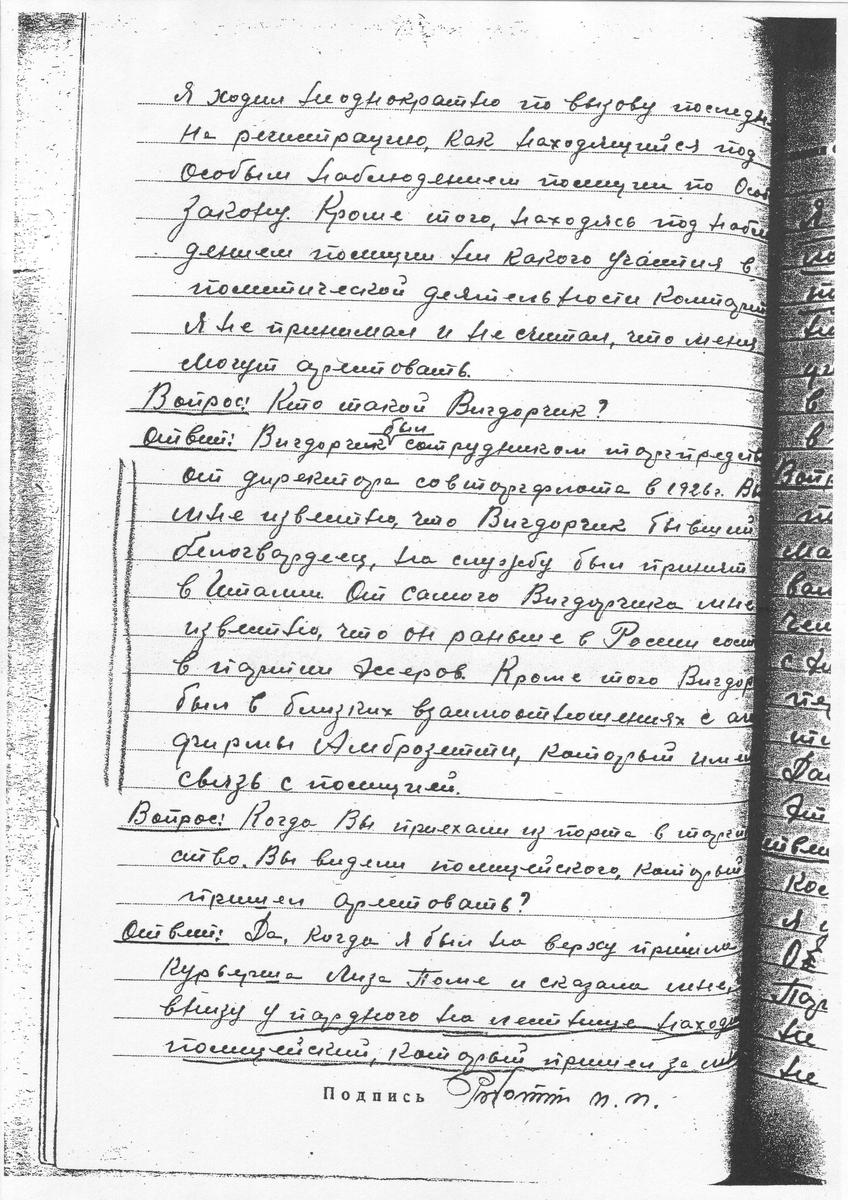 Я ходил неоднократно по вызову последн
на регистрацию, как находящийся под
особым наблюдением полиции по Особ
закону. Кроме того, находясь под наблю
дением полиции ни какого участия в
политической деятельности Компарт
я не принимал и не считал, что меня
могут арестовать.
Вопрос: Кто такой Вигдорчик?
был
Ответ: Вигдорчик сотрудником торгпредст
от директора совторгфлота в 1926г. Вы
мне известно, что Вигдорчик бывший
белогвардеец, на службу был принят
в Италии. От самого Вигдорчика мне
известно, что он раньше в России сост
в партии Эсеров. Кроме того Вигдор
был в близких взаимоотношениях с аг
фирмы Амброзетти, который имел
связь с полицией.
Вопрос: Когда Вы приехали из порта в торгп
ство. Вы видели полицейского, который
пришел арестовать?
Ответ: Да, когда я был на верху пришла
курьерша Лиза Поме и сказала мне,
внизу у парадного на лестнице находи
полицейский, который пришел за мн
Подпись Роботти п.п.